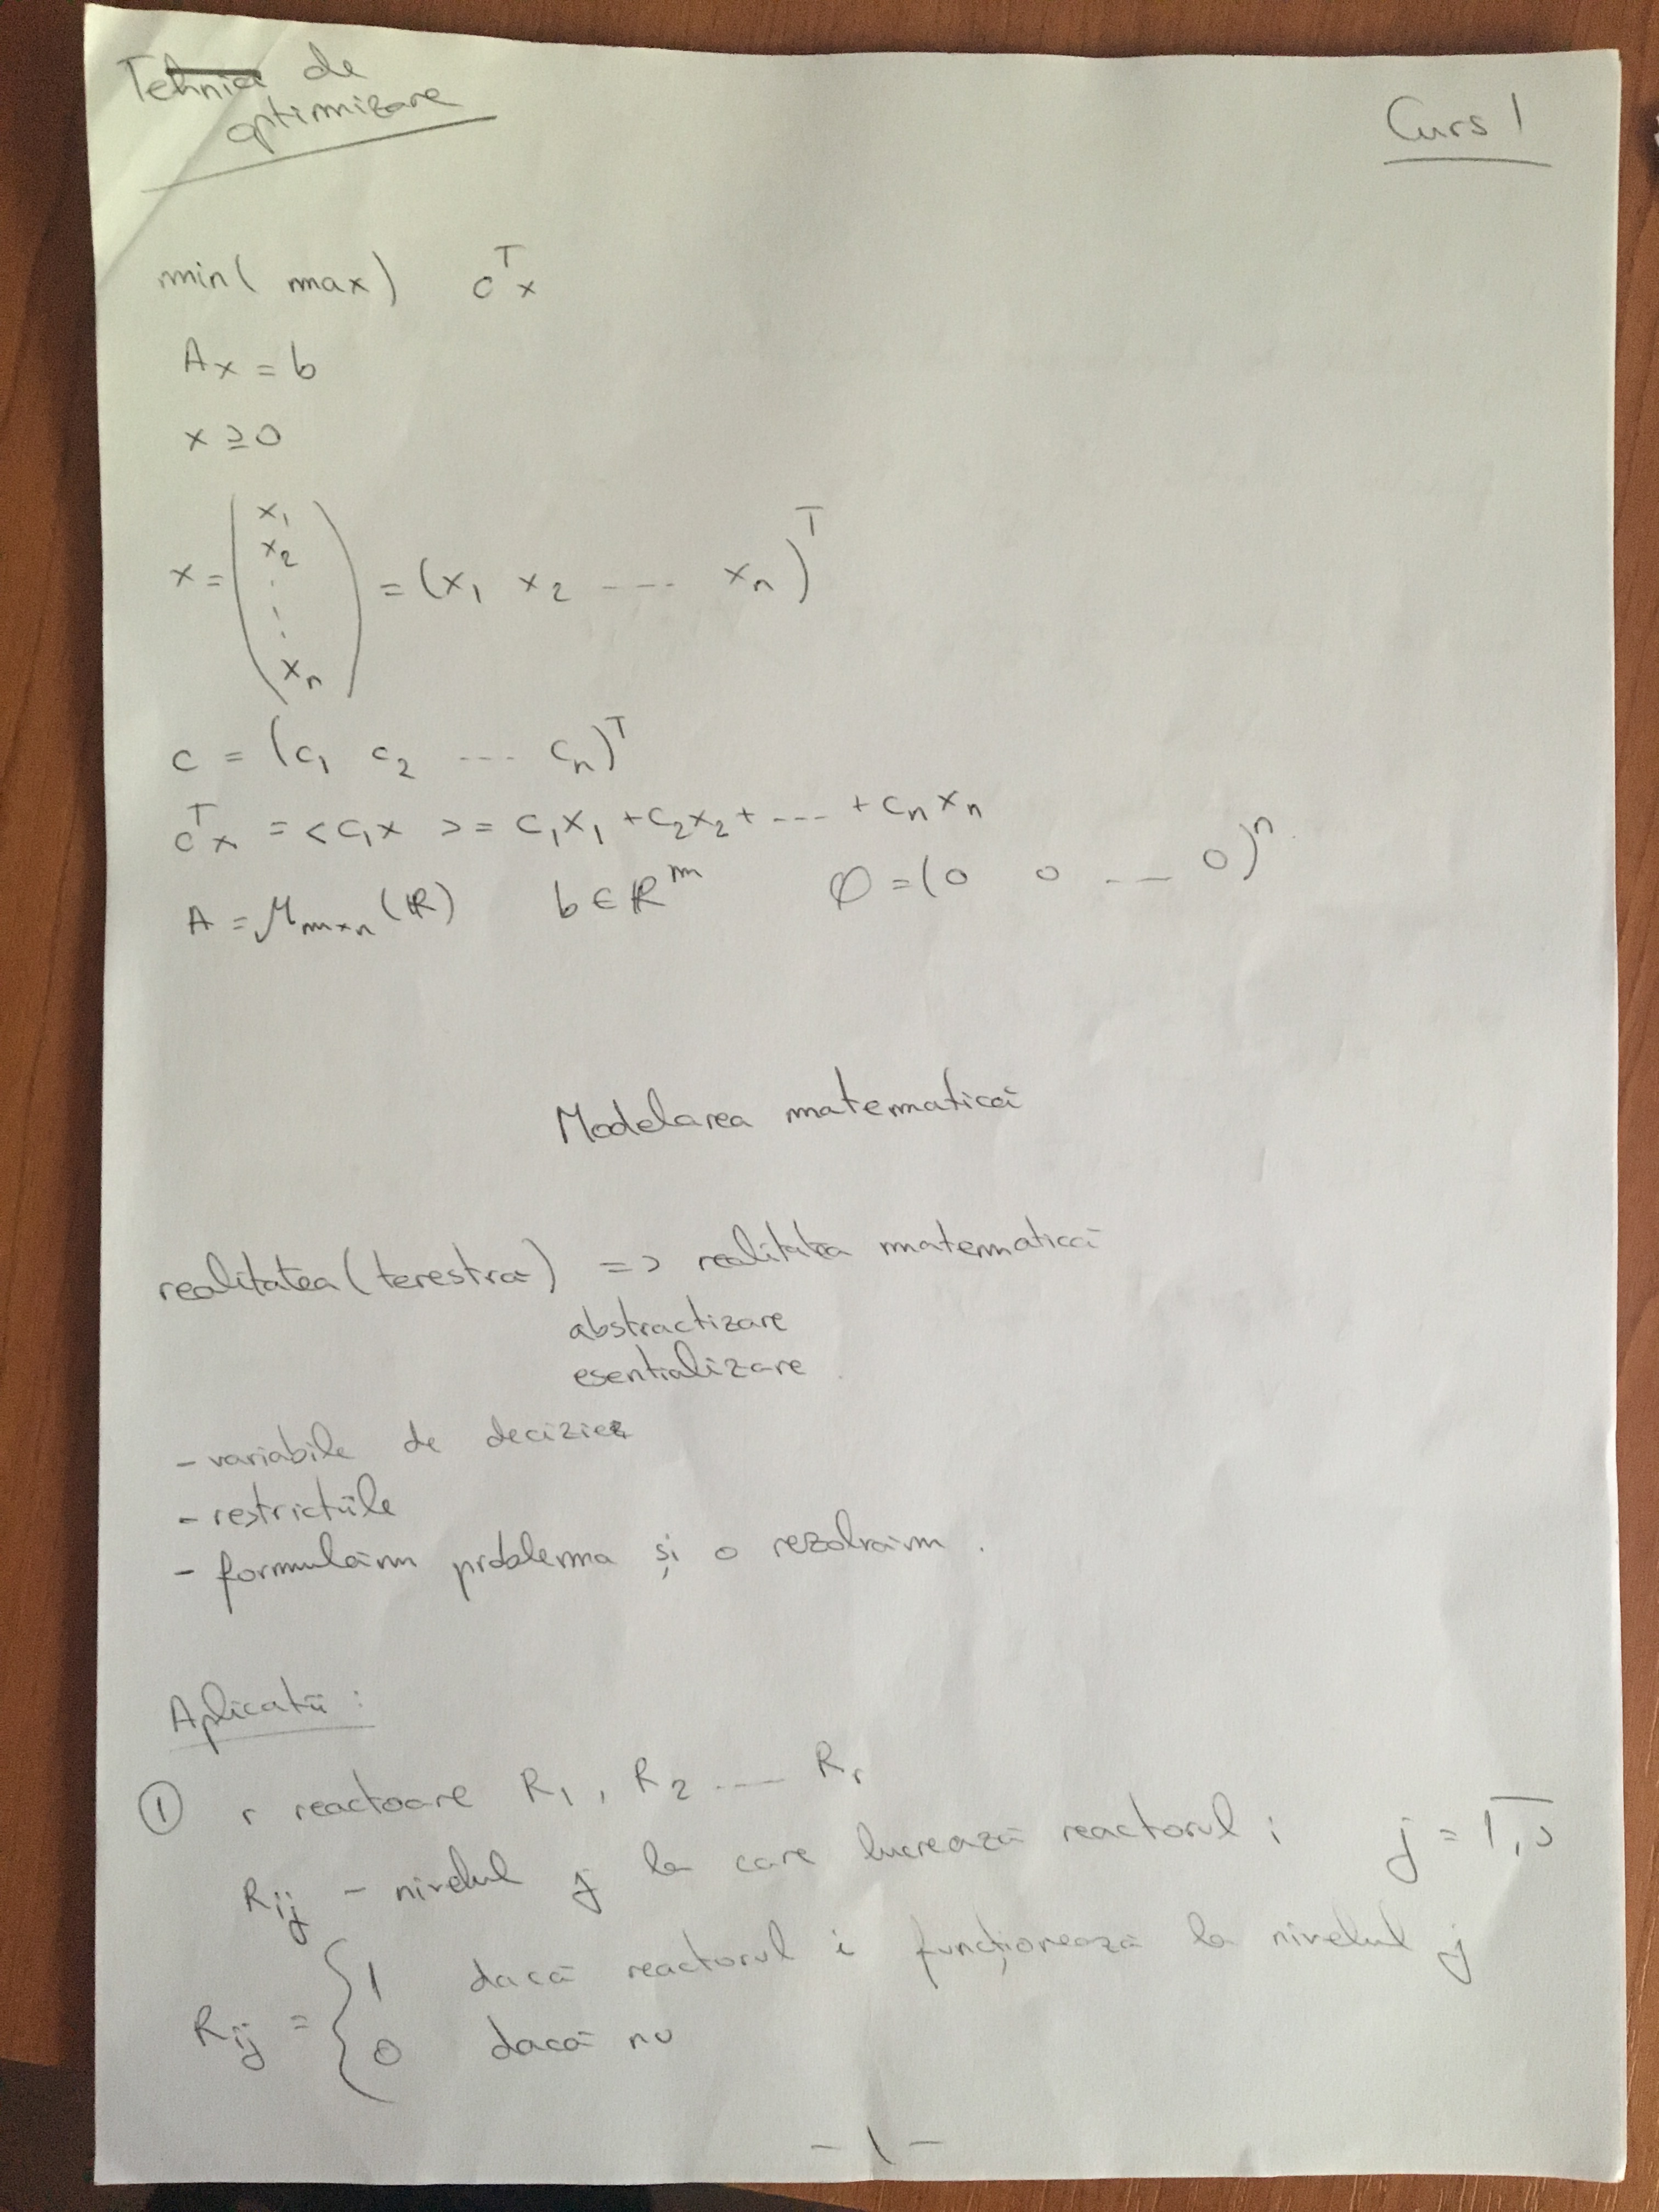 Tehnici de
optimizare
Curs 1
min( max) cᵀx
Ax = b
x ≥ 0
x = (x₁ x₂ ⋮ xₙ) = (x₁ x₂ ---- xₙ)ᵀ
c = (c₁ c₂ ---- cₙ)ᵀ
cᵀx = <c,x > = c₁x₁ + c₂x₂ + --- + cₙxₙ
A = ℳₘₓₙ(ℝ) b ∈ ℝᵐ 0 = (0 0 -- -- 0)ⁿ
Modelarea matematică
realitatea (terestră) => realitatea matematică
abstractizare
esentializare
- variabile de decizie
- restrictiile
- formulăm problema și o rezolvăm.
Aplicatii :
① r reactoare R₁, R₂ ---- Rᵣ
Rᵢⱼ - nivelul j la care lucrează reactorul i
Rᵢⱼ = { 1 dacă reactorul i funcționează la nivelul j
0 dacă nu
- 1 -